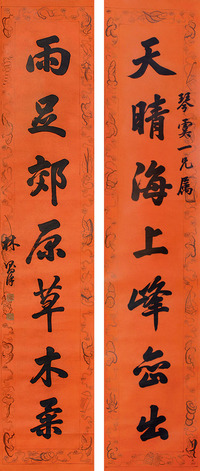 天晴海上峰峦出
琴云一兄属
雨足郊原草木柔
林则徐